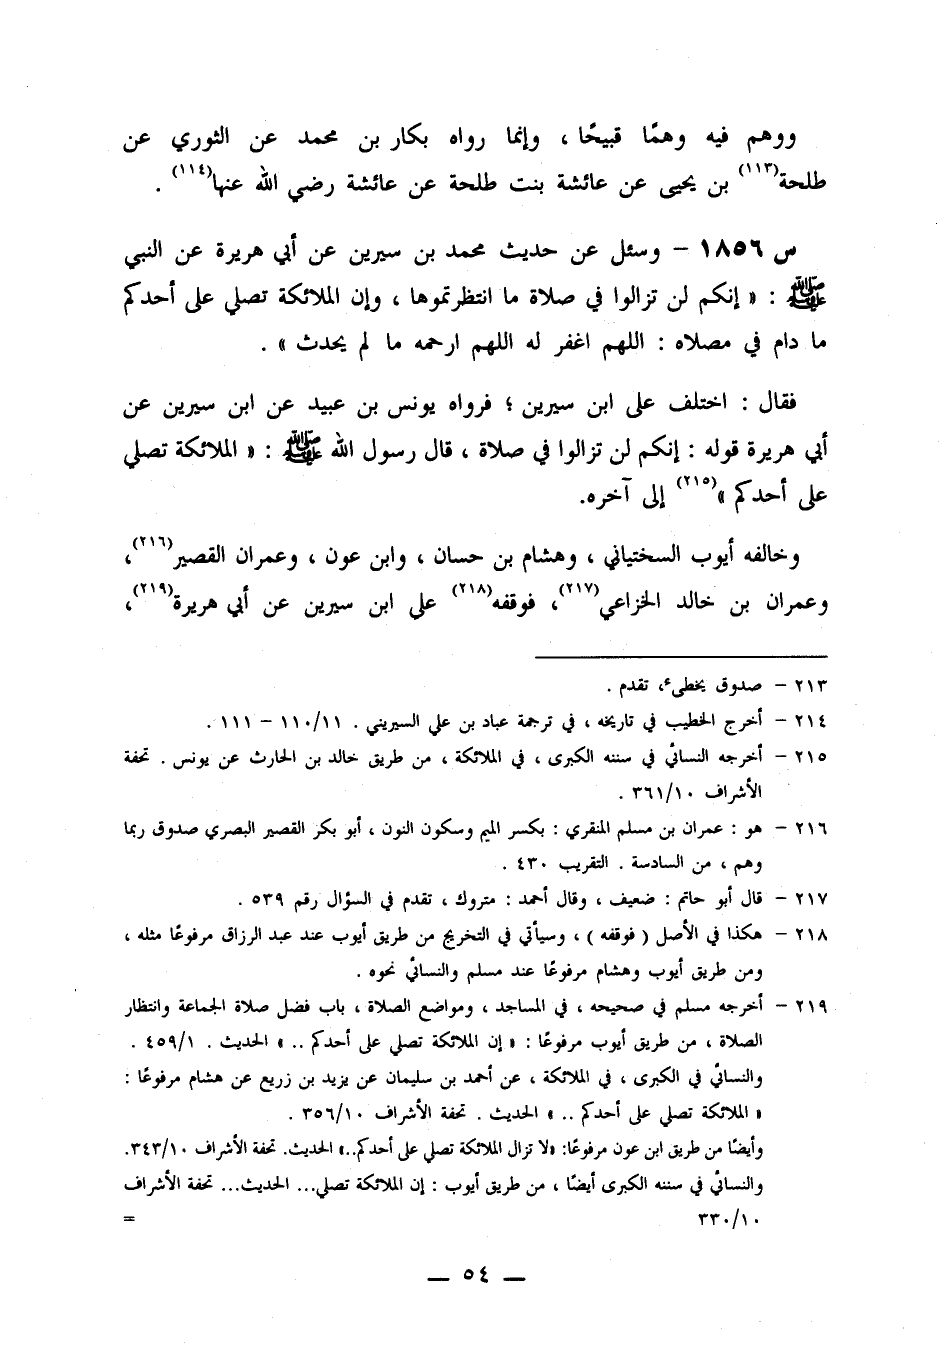 ووهم فيه وهمًا قبيحًا ، وإنما رواه بكار بن محمد عن الثوري عن
طلحة(١١٣) بن يحيى عن عائشة بنت طلحة عن عائشة رضي الله عنها(١١٤) .
س ١٨٥٦ – وسئل عن حديث محمد بن سيرين عن أبي هريرة عن النبي
ﷺ : « إنكم لن تزالوا في صلاة ما انتظرتموها ، وإن الملائكة تصلي على أحدكم
ما دام في مصلاه : اللهم اغفر له اللهم ارحمه ما لم يحدث » .
فقال : اختلف على ابن سيرين ؛ فرواه يونس بن عبيد عن ابن سيرين عن
أبي هريرة قوله : إنكم لن تزالوا في صلاة ، قال رسول الله ﷺ : « الملائكة تصلي
على أحدكم »(٢١٥) إلى آخره.
وخالفه أيوب السختياني ، وهشام بن حسان ، وابن عون ، وعمران القصير(٢١٦)،
وعمران بن خالد الخزاعي(٢١٧)، فوقفه(٢١٨) على ابن سيرين عن أبي هريرة(٢١٩)،
٢١٣ – صدوق يخطىء، تقدم .
٢١٤ – أخرج الخطيب في تاريخه ، في ترجمة عباد بن علي السيريني . ١١٠/١١ – ١١١ .
٢١٥ – أخرجه النسائي في سننه الكبرى ، في الملائكة ، من طريق خالد بن الحارث عن يونس . تحفة
الأشراف ٣٦١/١٠ .
٢١٦ – هو : عمران بن مسلم المنقري : بكسر الميم وسكون النون ، أبو بكر القصير البصري صدوق ربما
وهم ، من السادسة . التقريب ٤٣٠ .
٢١٧ – قال أبو حاتم : ضعيف ، وقال أحمد : متروك ، تقدم في السؤال رقم ٥٣٩ .
٢١٨ – هكذا في الأصل ( فوقفه ) ، وسيأتي في التخريج من طريق أيوب عند عبد الرزاق مرفوعًا مثله ،
ومن طريق أيوب وهشام مرفوعًا عند مسلم والنسائي نحوه .
٢١٩ – أخرجه مسلم في صحيحه ، في المساجد ، ومواضع الصلاة ، باب فضل صلاة الجماعة وانتظار
الصلاة ، من طريق أيوب مرفوعًا : « إن الملائكة تصلي على أحدكم .. » الحديث . ٤٥٩/١ .
والنسائي في الكبرى ، في الملائكة ، عن أحمد بن سليمان عن يزيد بن زريع عن هشام مرفوعًا :
« الملائكة تصلي على أحدكم .. » الحديث . تحفة الأشراف ٣٥٦/١٠ .
وأيضًا من طريق ابن عون مرفوعًا: «لا تزال الملائكة تصلي على أحدكم..» الحديث. تحفة الأشراف ٣٤٣/١٠.
والنسائي في سننه الكبرى أيضًا ، من طريق أيوب : إن الملائكة تصلي... الحديث... تحفة الأشراف
٣٣٠/١٠ =
— ٥٤ —